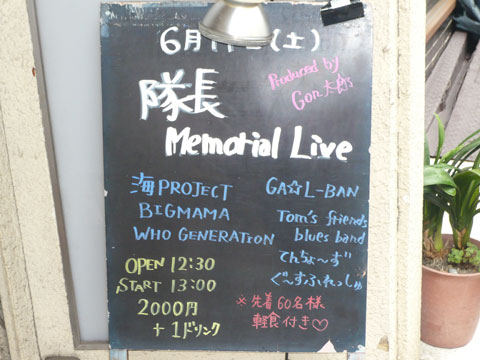 6月 (土)
隊長
Produced by
Gon太郎
Memorial Live
海PROJECT
BIGMAMA
WHO GENERATION
GA☆L-BAN
Tom's friends
blues band
てんちょ〜ず
ぐ〜すふれっしゅ
OPEN 12:30
START 13:00
2000円
+1ドリンク
※先着60名様
軽食付き♡